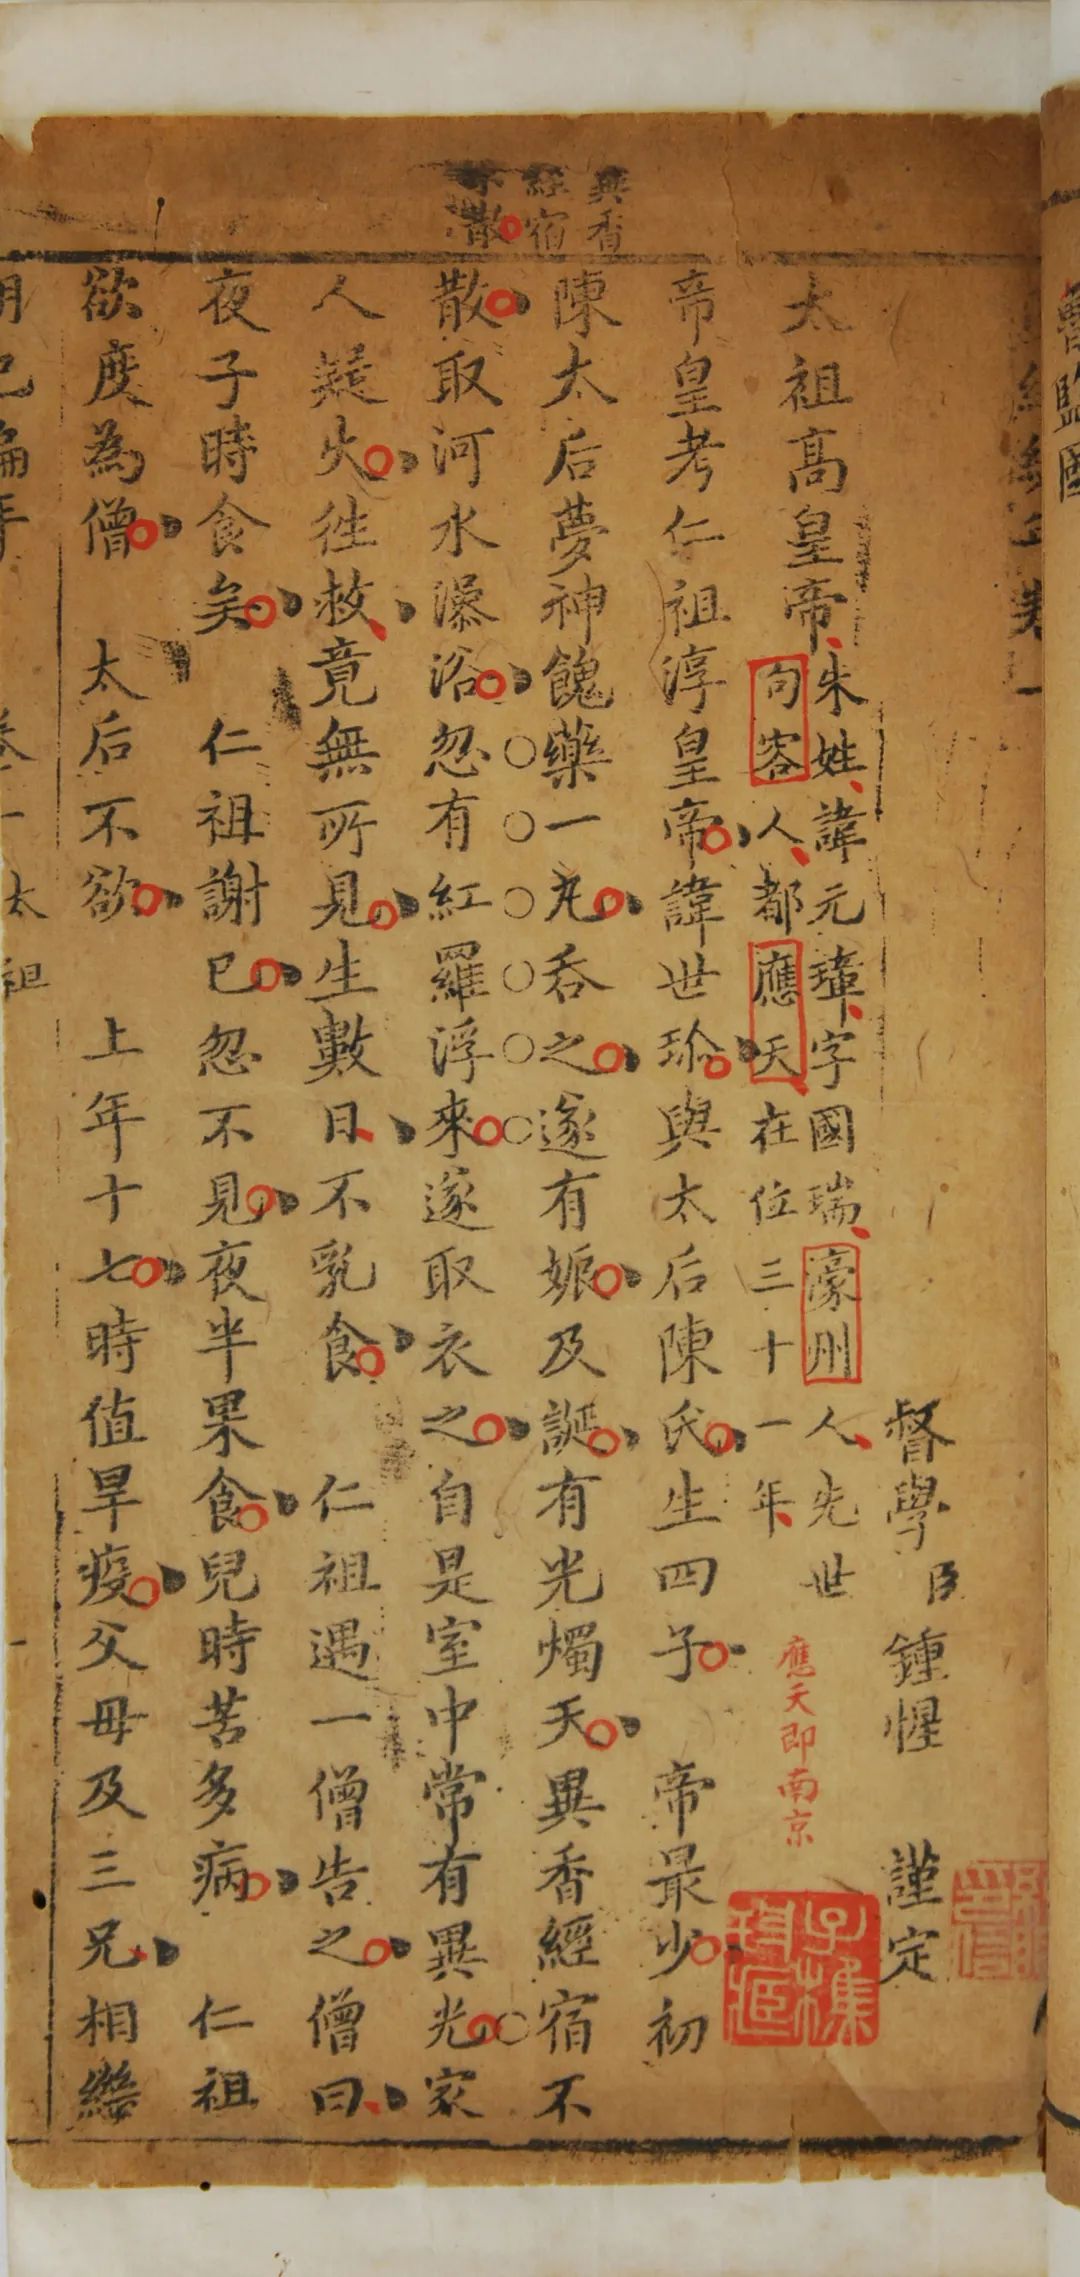 督學臣鍾惺 謹定
太祖高皇帝朱姓諱元璋字國瑞濠州人先世
句容人都應天在位三十一年
應天即南京
帝皇考仁祖淳皇帝諱世珍與太后陳氏生四子 帝最少初
陳太后夢神餽藥一丸吞之遂有娠及誕有光燭天異香經宿不
散取河水澡浴忽有紅羅浮來遂取衣之自是室中常有異光家
人疑火徃救竟無所見生數日不乳食 仁祖遇一僧告之僧曰
夜子時食矣 仁祖謝已忽不見夜半果食兒時苦多病 仁祖
欲度為僧 太后不欲 上年十七時值旱疫父母及三兄相繼
異香
經宿
不散
卷一 太祖